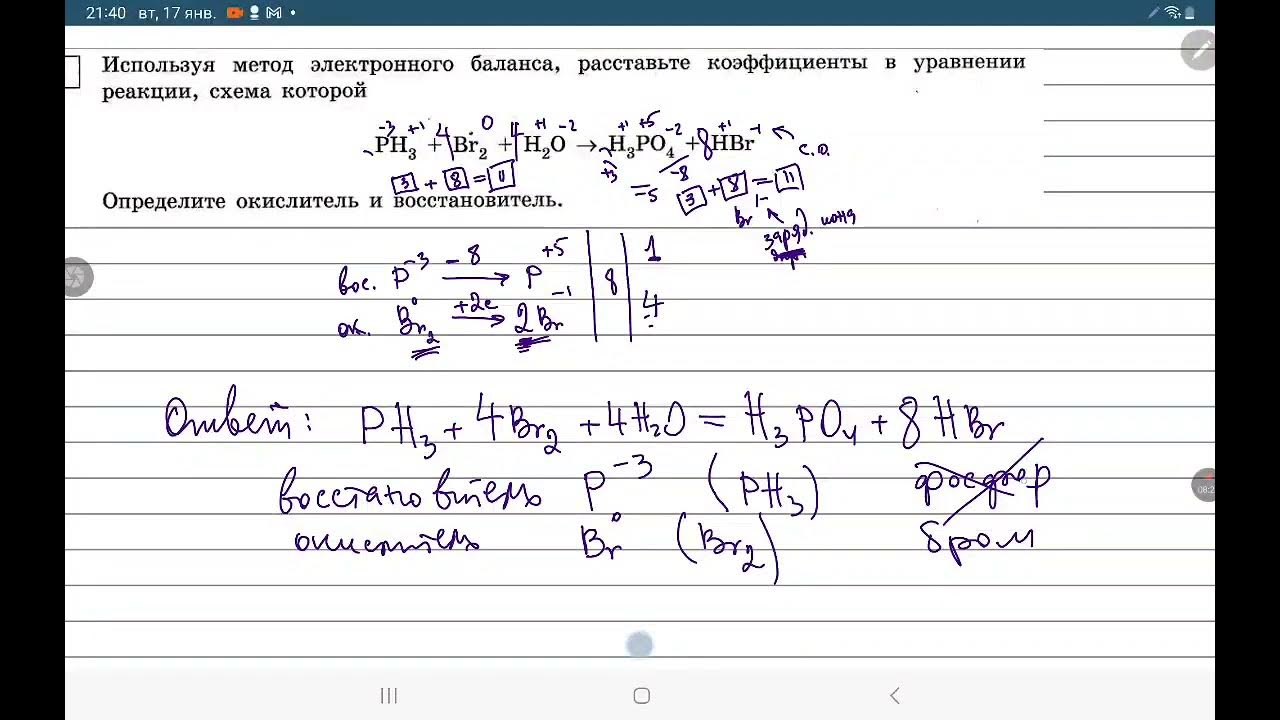 21:40 вт, 17 янв.
Используя метод электронного баланса, расставьте коэффициенты в уравнении
реакции, схема которой
-3 +1 0 +1 -2 +1 +5 -2 +1 -1
PH₃ + 4Br₂ + 4H₂O → H₃PO₄ + 8HBr с.о.
+3 -8
3 + 8 = 11 = 5 3 + 8 = 11
Определите окислитель и восстановитель.
Br 1- заряд. иона
вос. P⁻³ -8 → P⁺⁵ 8 1
ок. Br₂⁰ +2e → 2Br⁻¹ 4
Ответ: PH₃ + 4Br₂ + 4H₂O = H₃PO₄ + 8HBr
восстановитель P⁻³ (PH₃) фосфор
окислитель Br⁰ (Br₂) бром